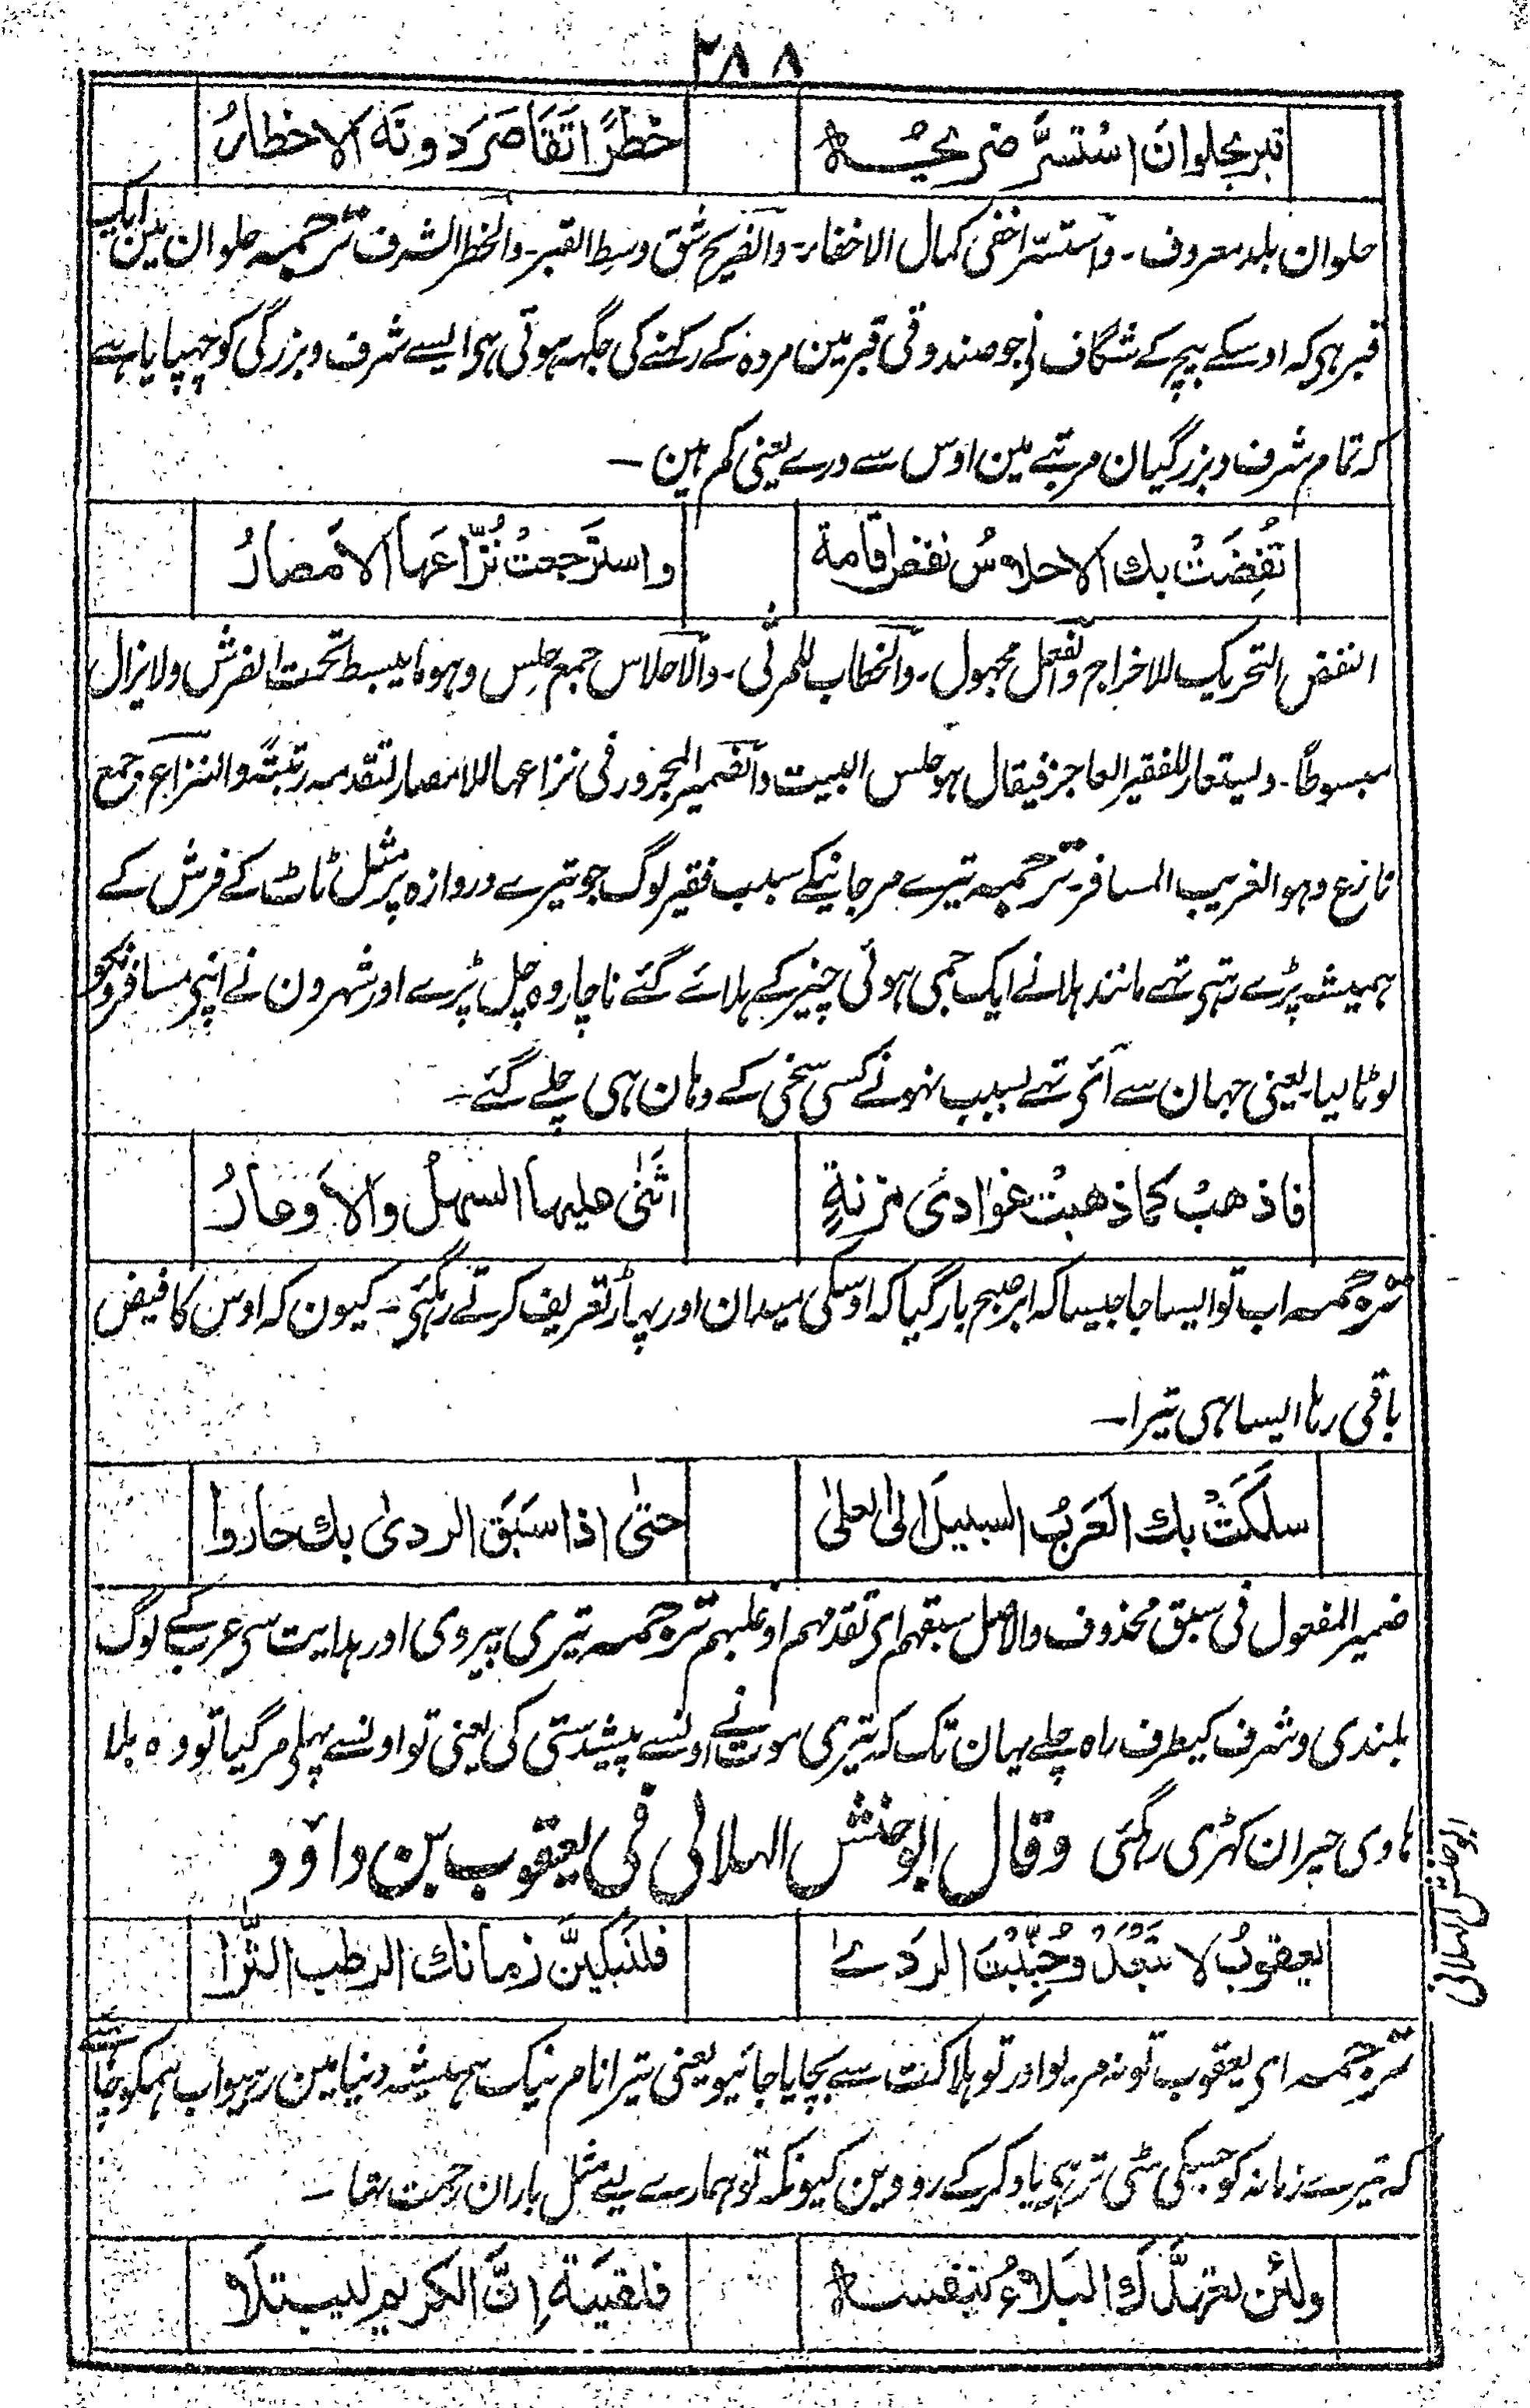 ۲۸۸
قبر بحلوان استسرَّ ضريحُه خطرًا تَقَاصَرَ دونَه الاخطارُ
حلوان بلد معروف۔ واستسر اخفی کمال الاخفاء۔ والضریح شق وسط القبر۔ والخطر الشرف ترجمہ حلوان مین ایک
قبر ہی کہ اوسکے بیچ کے شگاف نی جو صندوقی قبر مین مردہ کے رکھنے کی جگہ ہوتی ہی ایسے شرف و بزرگی کو چہپایا ہے
کہ تمام شرف و بزرگیان مرتبے مین اوس سے ورے یعنی کم ہین —
نُفِضَتْ بك الاحلاسُ نفض اقامة واسترجعتْ نُزّاعَها الامصارُ
النفض التحریک للاخراج والفعل مجہول۔ والخطاب للمرثی۔ والاحلاس جمع حِلس وہو ما یبسط تحت الفرش ولا یزال
مبسوطًا۔ ویستعار للفقیر العاجز فیقال ہو حلس البیت والضمیر المجرور فی نزاعہا للامصار لتقدمہ رتبةً والنزاع جمع
نازع وہو الغریب المسافر۔ ترجمہ تیرے مر جانیکے سبب فقیر لوگ جو تیرے دروازہ پر مثل ٹاٹ کے فرش کے
ہمیشہ پڑے رہتی تہے مانند ہلانے ایک جمی ہوئی چیز کے ہلائے گئے ناچار وہ چل پڑے اور شہرون نے اپنی مسافرونکو
لوٹا لیا۔ یعنی جہان سے آئی تہے بسبب نہونے کسی سخی کے وہان ہی چلے گئے۔
فاذهبْ كما ذهبتْ غوادى مزنةٍ اثنٰى عليها السهلُ والاوعارُ
ترجمہ اب تو ایسا جا جیسا کہ ابر صبح بار گیا کہ اوسکی میدان اور پہاڑ تعریف کرتے رہگئی۔ کیون کہ اوس کا فیض
باقی رہا ایسا ہی تیرا—
سلكتْ بك العَرَبُ السبيلَ الى العلىٰ حتىٰ اذا سَبَقَ الردىٰ بك حاروا
ضمیر المفعول فی سبق محذوف والاصل سبقہم ای تقدمہم او غلبہم ترجمہ تیری پیروی اور ہدایت سی عرب کے لوگ
بلندی و شرف کیطرف راہ چلے یہان تک کہ تیری موت نے اونسے پیشدستی کی یعنی تو اونسے پہلی مر گیا تو وہ بلا
ہادی حیران کہڑی رہگئی وقال ابو حنش الهلالی فی یعقوب بن داؤد
يعقوبُ لا تبعدْ وجُنّبتَ الردے فلنبكينَّ زمانك الرطب الثرا
ترجمہ ای یعقوب تو نہ مریو اور تو ہلاکت سے بچایا جائیو یعنی تیرا نام نیک ہمیشہ دنیا مین رہیو اب ہمکو چاہئے
کہ تیرے زمانہ کو جسکی مٹی تر تہی یاد کرکے رووین کیونکہ تو ہمارے لیے مثل باران رحمت تہا —
ولئن تعهّدك البلاءُ بنفسه فلقيتَه اِنَّ الكريم ليبتلا